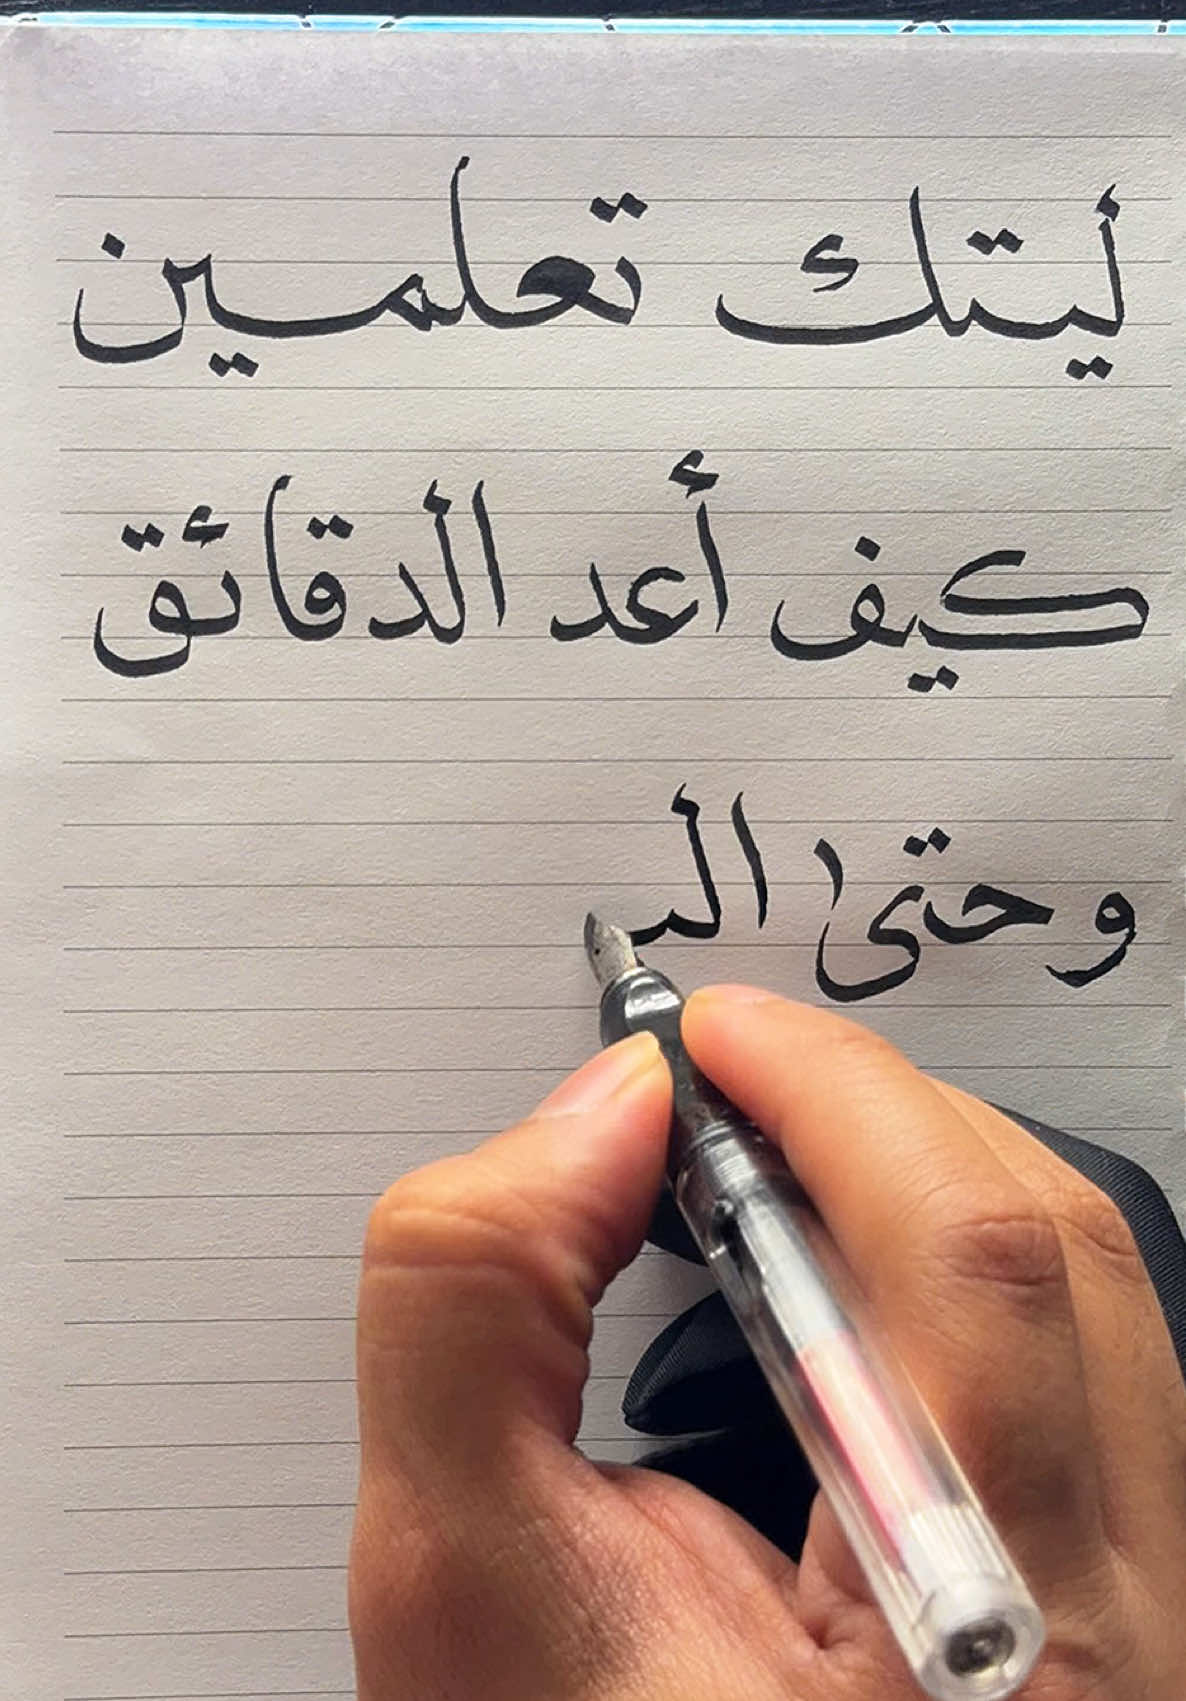 ليتك تعلمين
كيف أعد الدقائق
وحتى الـ